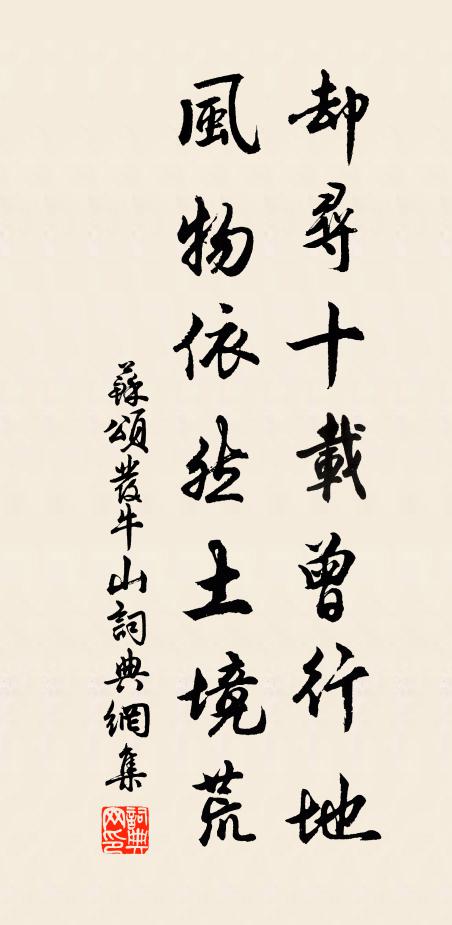 却尋十載曾行地
風物依然土境荒
蘇頌發牛山詞典網集
詞典网印